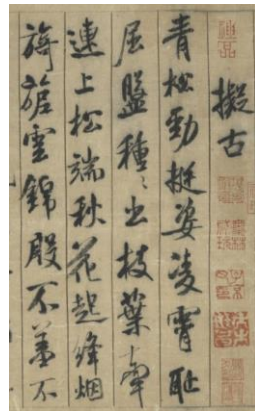 擬古
青松勁挺姿凌霄耻
屈盤種々出枝葉牽
連上松端秋花起絳烟
旖旎雲錦殷不羞不